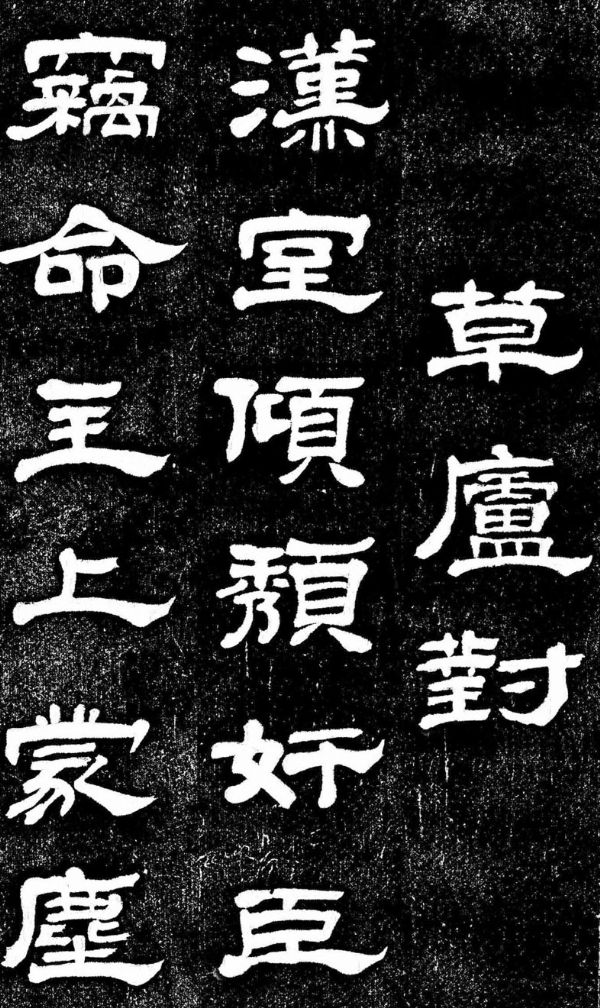 草廬對
漢室傾頹奸臣
竊命主上蒙塵